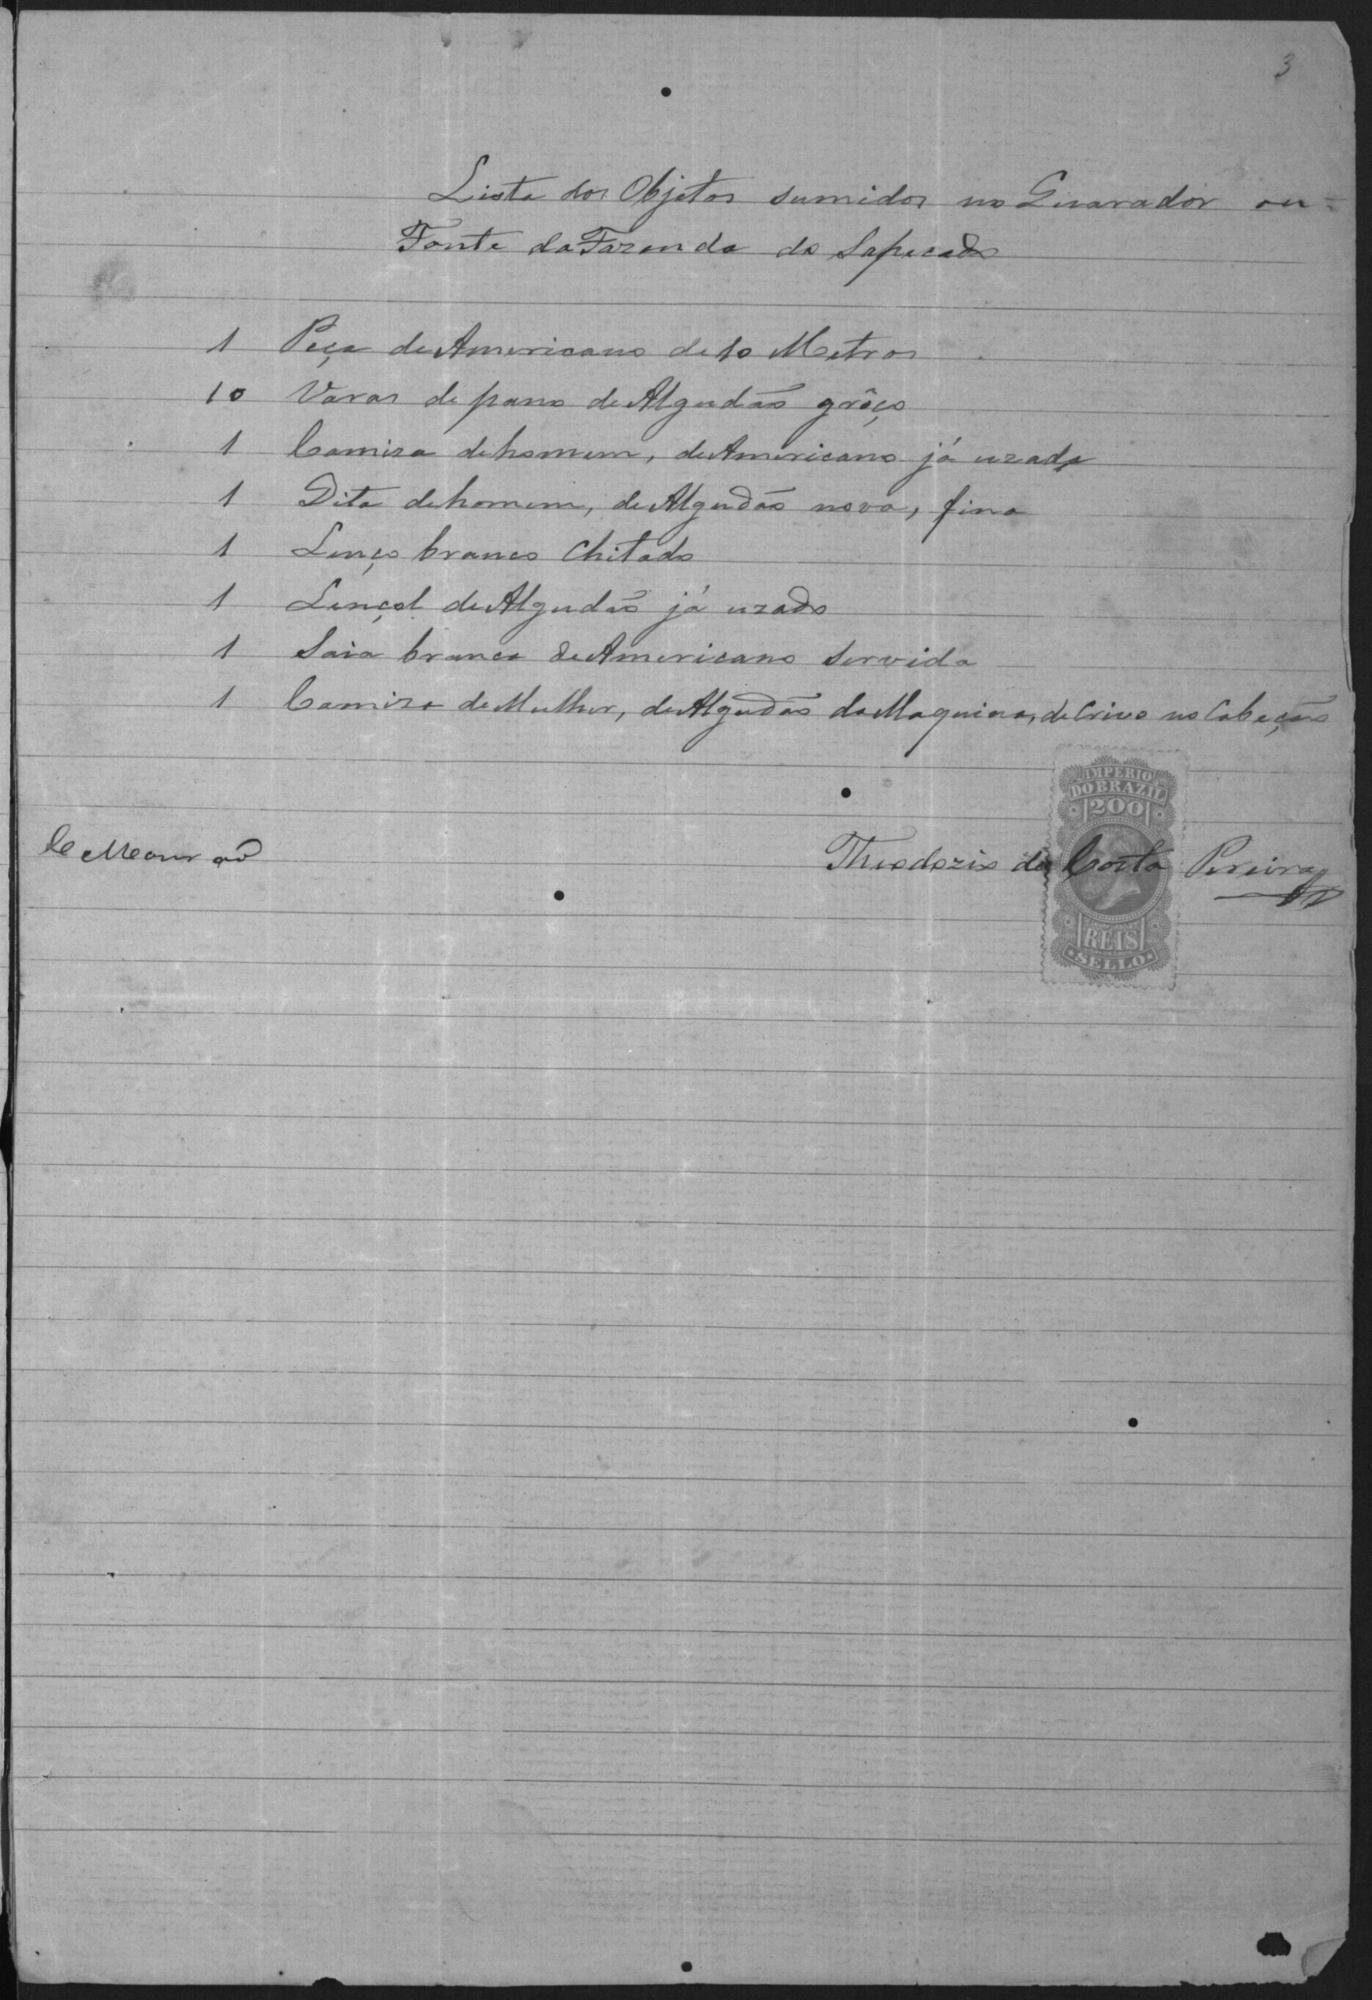 3
Lista dos Objetos sumidos no Guarador ou
Fonte da Fazenda do Sapecado
1 Peça de Americano de 10 Metros
10 Varas de pano de Algudão grôço
1 Camiza de homem, de Americano já uzada
1 Dita de homem, de Algudão nova, fina
1 Lenço branco Chitado
1 Lençol de Algudão já uzado
1 Saia branca de Americano servida
1 Camiza de Mulher, de Algudão da Maquina, de Crivo no Cabeção
IMPERIO
DO BRAZIL
200
Theodozio da Costa Pereira
REIS
SELLO